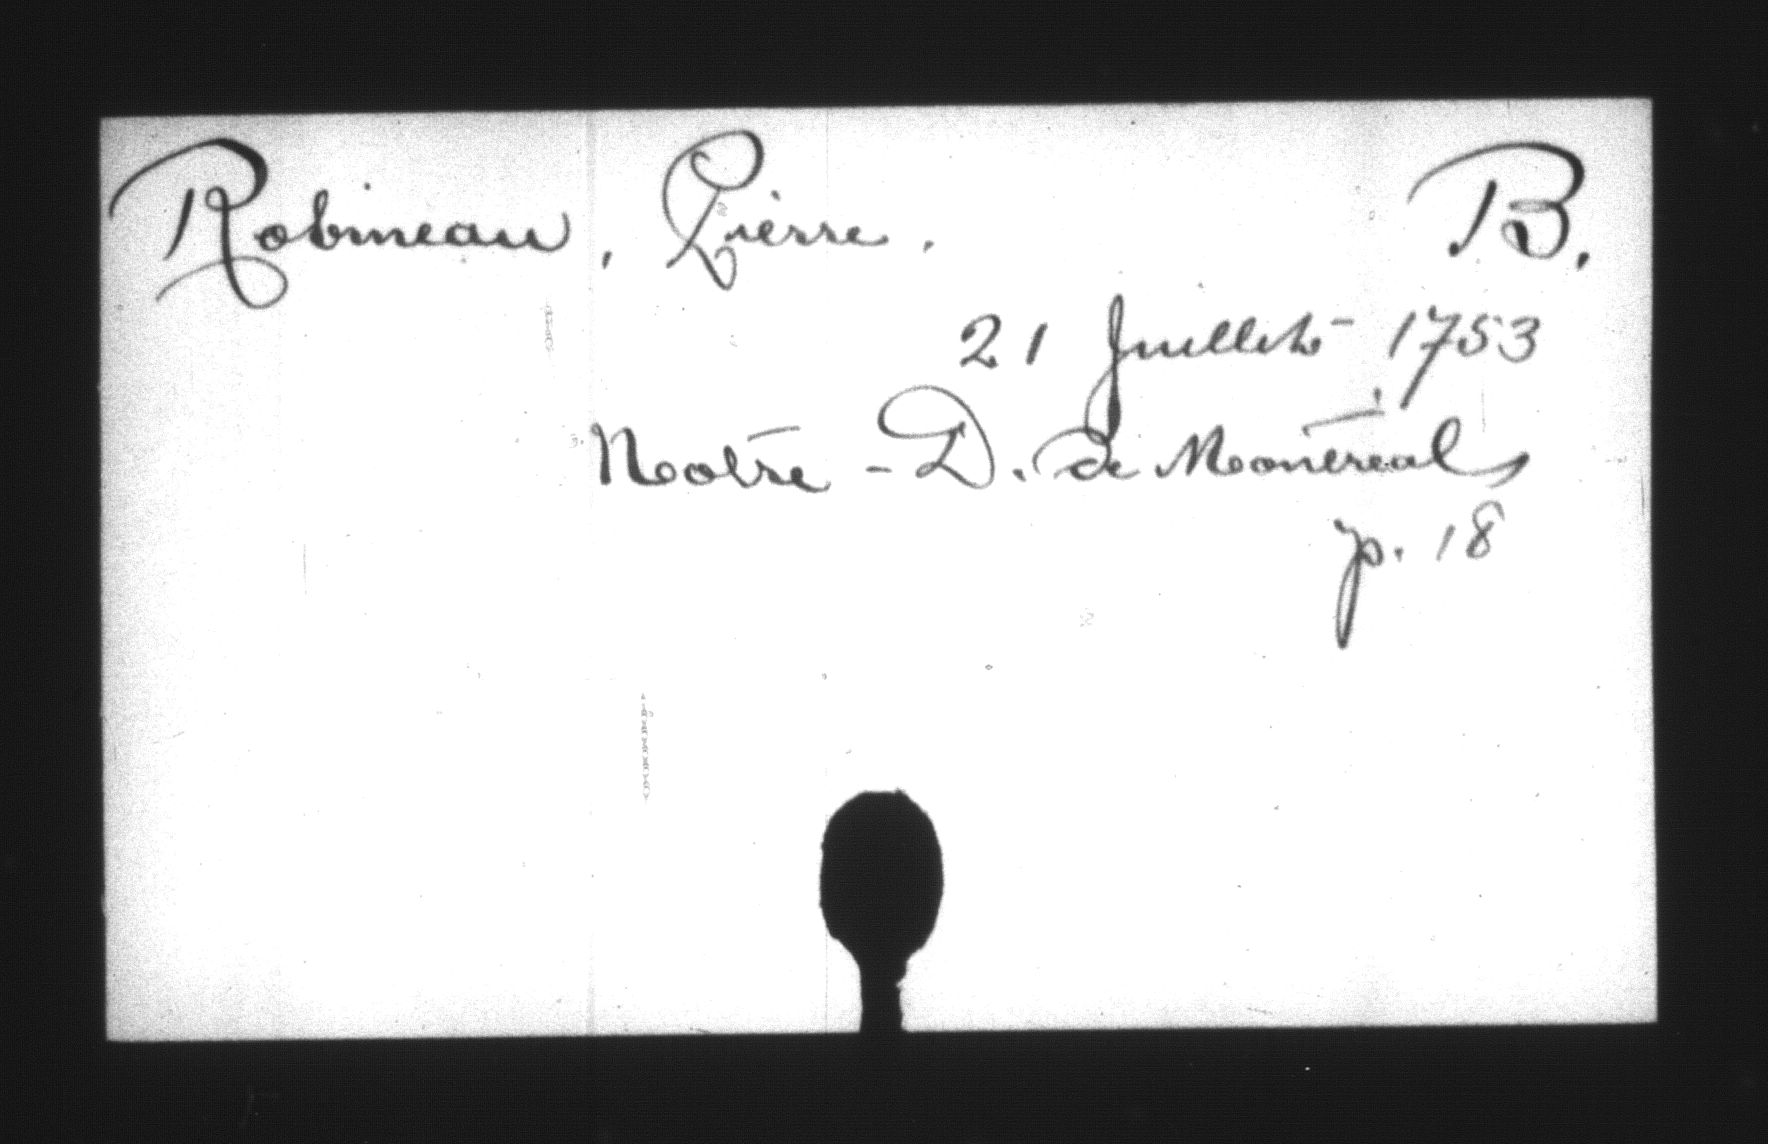 Robineau, Pierre. B.
21 Juillet 1753
Notre-D. de Montréal
p. 18